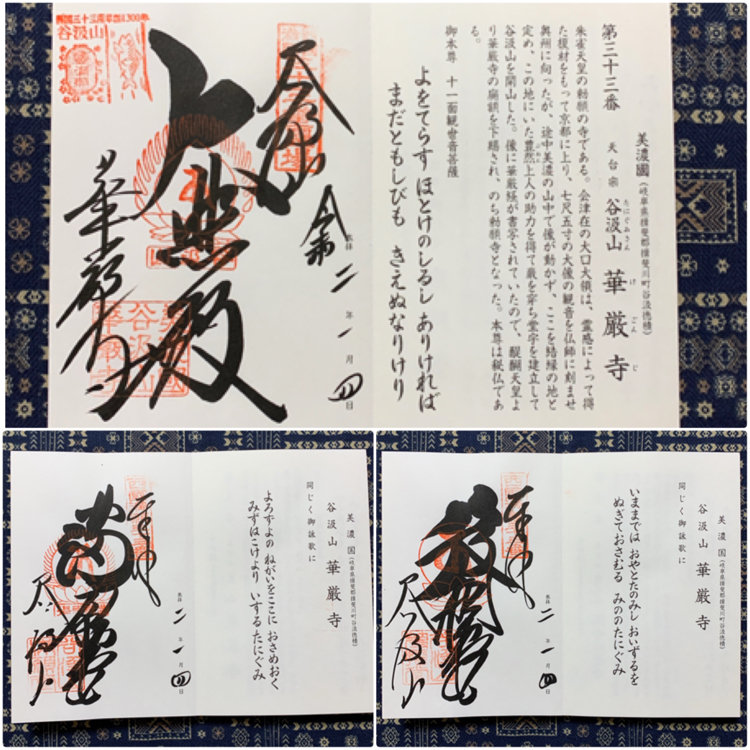 美濃國(岐阜県揖斐郡揖斐川町谷汲徳積)
第三十三番 天台宗 谷汲山 華厳寺
たにぐみさん けごんじ
朱雀天皇の勅願の寺である。会津在の大口大領は、霊感によって得
た榎材をもって京都に上り、七尺五寸の大像の観音を仏師に刻ませ
奥州に向ったが、途中美濃の山中で像が動かず、ここを結縁の地と
定め、この地にいた豊然上人の助力を得て巌を穿ち堂宇を建立して
谷汲山を開山した。像に華厳経が書写されていたので、醍醐天皇よ
り華厳寺の廟額を下賜され、のち勅願寺となった。本尊は秘仏であ
る。
御本尊 十一面観世音菩薩
よをてらす ほとけのしるし ありければ
まだともしびも きえぬなりけり
二年一月四日
谷汲山
華厳寺
谷汲山
美濃國(岐阜県揖斐郡揖斐川町谷汲徳積)
谷汲山 華厳寺
同じく御詠歌に
よろずよの ねがいをここに おさめおく
みずはこけより いずるたにぐみ
二年一月四日
満願堂
谷汲山
美濃國(岐阜県揖斐郡揖斐川町谷汲徳積)
谷汲山 華厳寺
同じく御詠歌に
いままでは おやとたのみし おいずるを
ぬぎておさむる みののたにぐみ
二年一月四日
笈摺堂
谷汲山